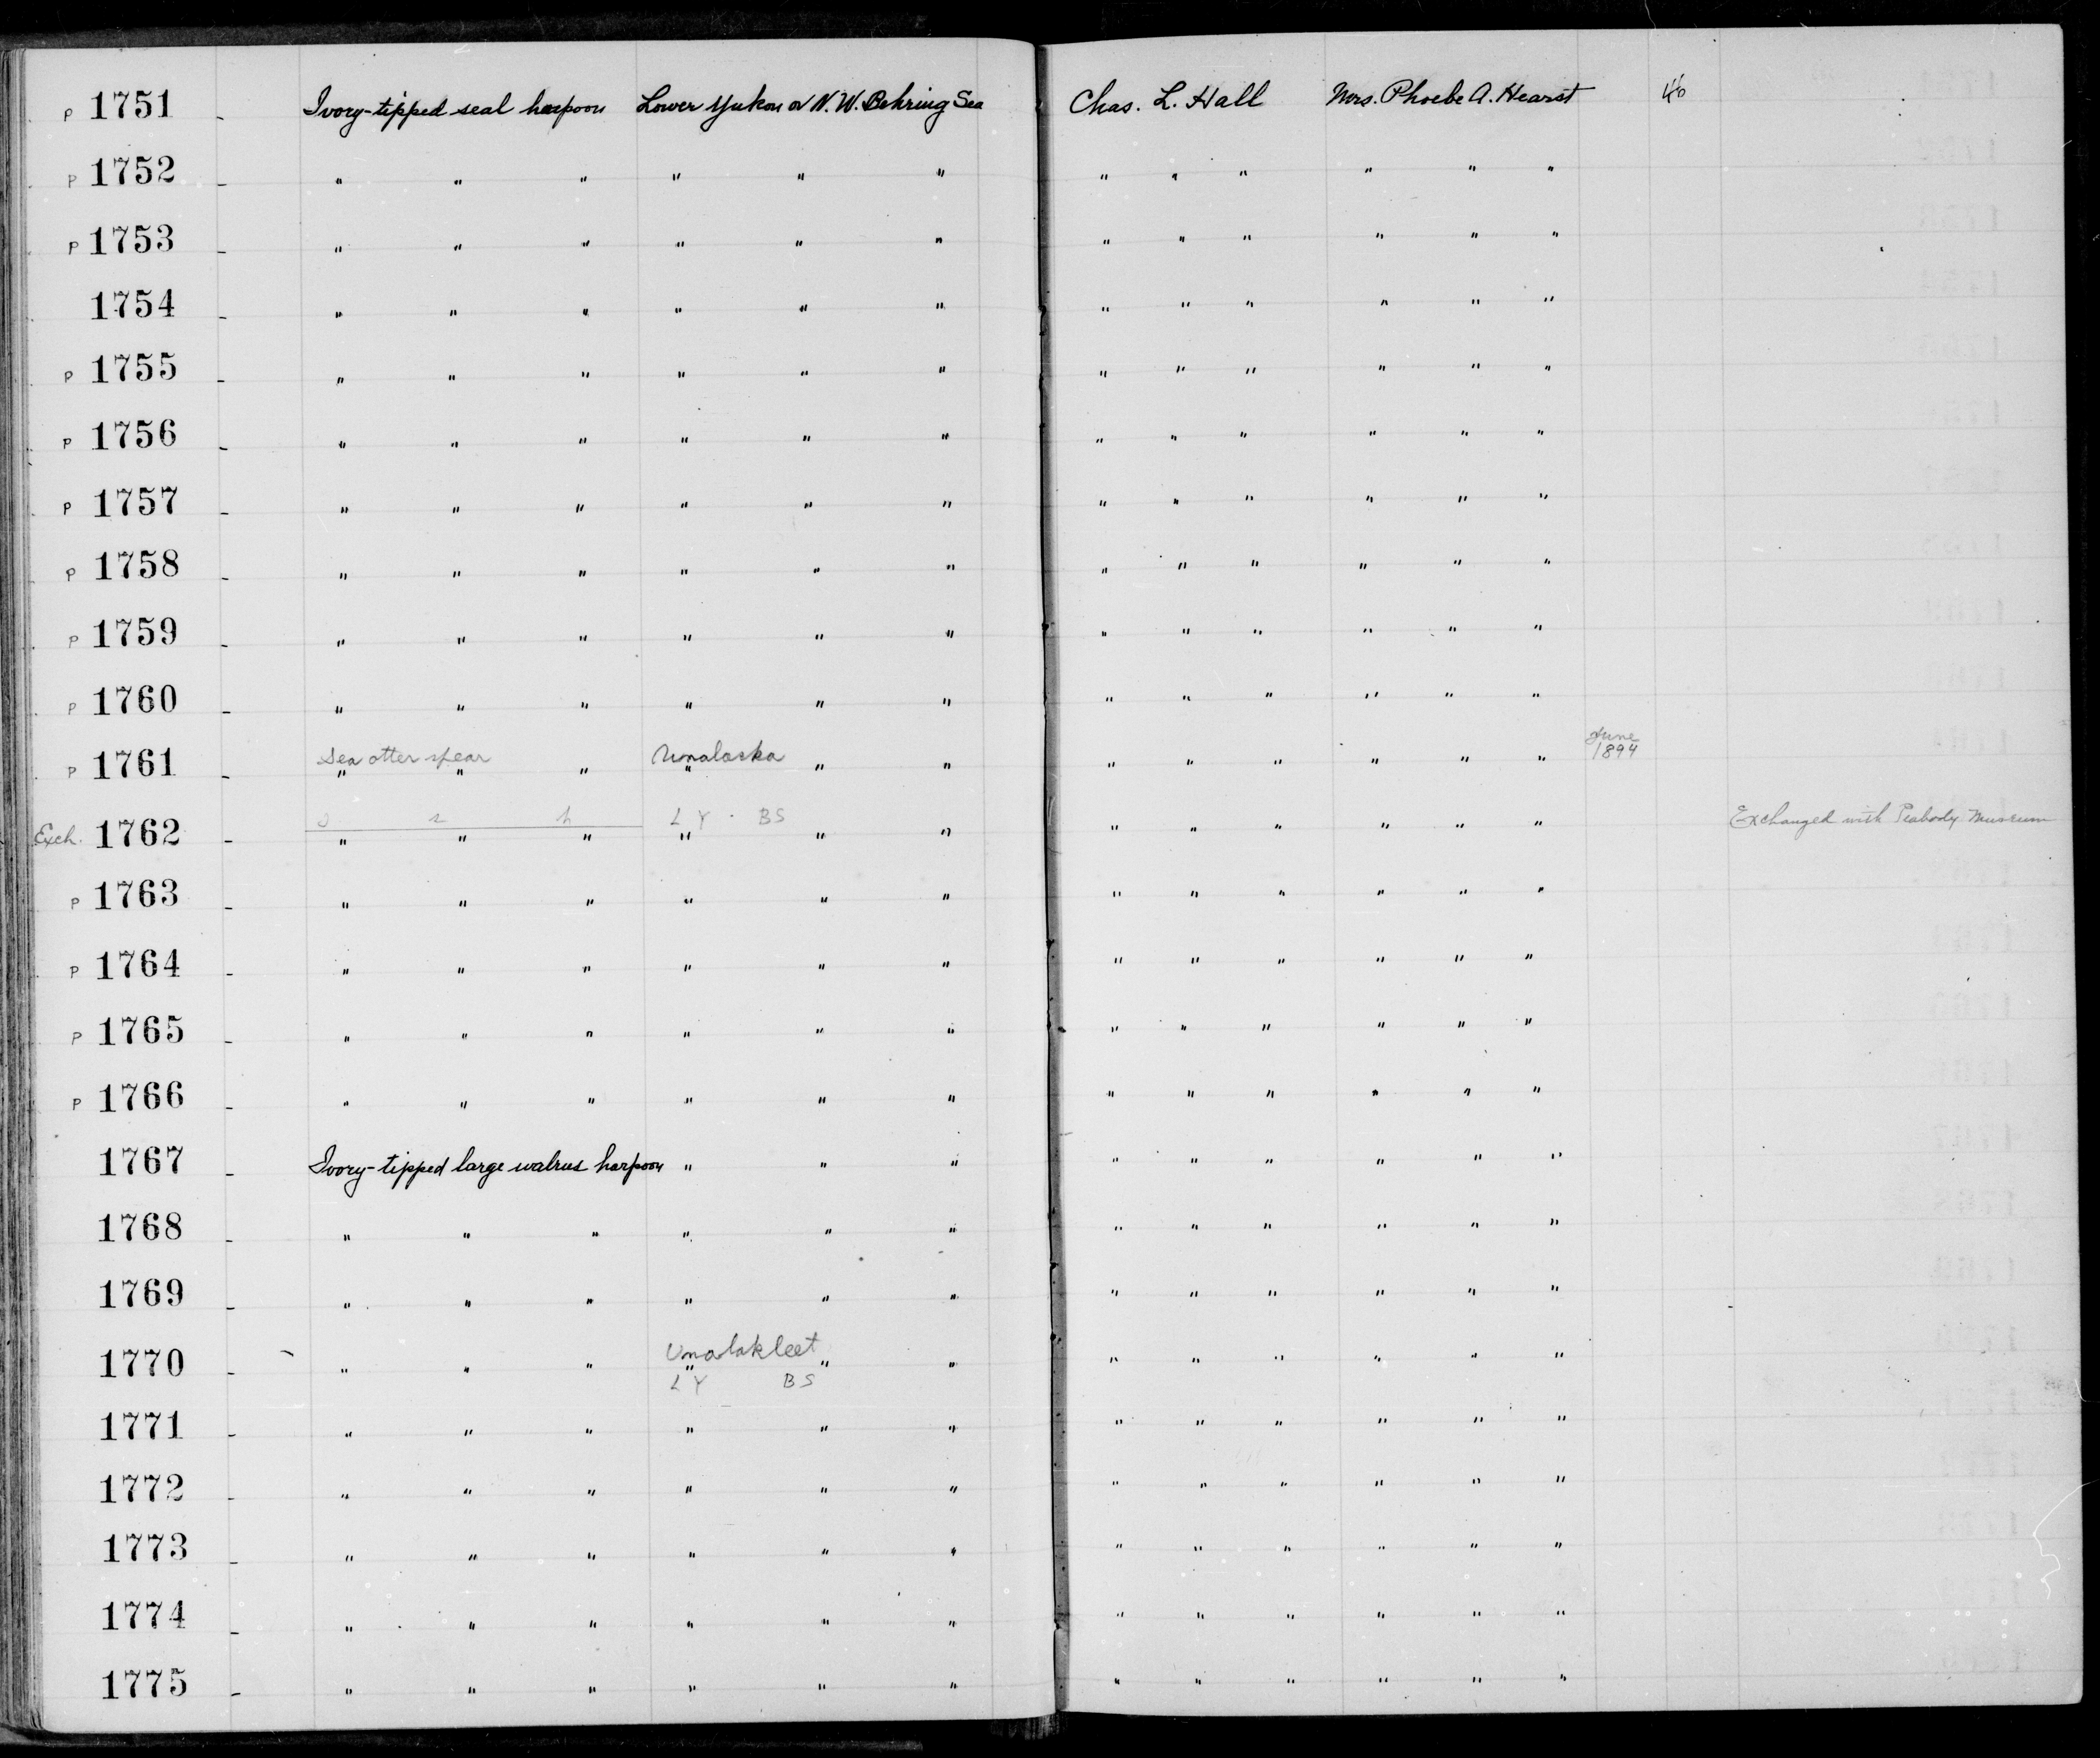 P 1751 - Ivory-tipped seal harpoon Lower Yukon or N.W. Behring Sea Chas. L. Hall Mrs. Phoebe A. Hearst
P 1752 - " " " " " " " " " " " "
P 1753 - " " " " " " " " " " " "
1754 - " " " " " " " " " " " "
P 1755 - " " " " " " " " " " " "
P 1756 - " " " " " " " " " " " "
P 1757 - " " " " " " " " " " " "
P 1758 - " " " " " " " " " " " "
P 1759 - " " " " " " " " " " " "
P 1760 - " " " " " " " " " " " "
Sea otter spear Unalaska June
P 1761 - " " " " " " " " " " " " 1894
s s h L Y BS
Exch. 1762 - " " " " " " " " " " " " Exchanged with Peabody Museum
P 1763 - " " " " " " " " " " " "
P 1764 - " " " " " " " " " " " "
P 1765 - " " " " " " " " " " " "
P 1766 - " " " " " " " " " " " "
1767 - Ivory-tipped large walrus harpoon " " " " " " " " "
1768 - " " " " " " " " " " " "
1769 - " " " " " " " " " " " "
Unalakleet
1770 - " " " " " " " " " " " "
L Y BS
1771 - " " " " " " " " " " " "
1772 - " " " " " " " " " " " "
1773 - " " " " " " " " " " " "
1774 - " " " " " " " " " " " "
1775 - " " " " " " " " " " " "